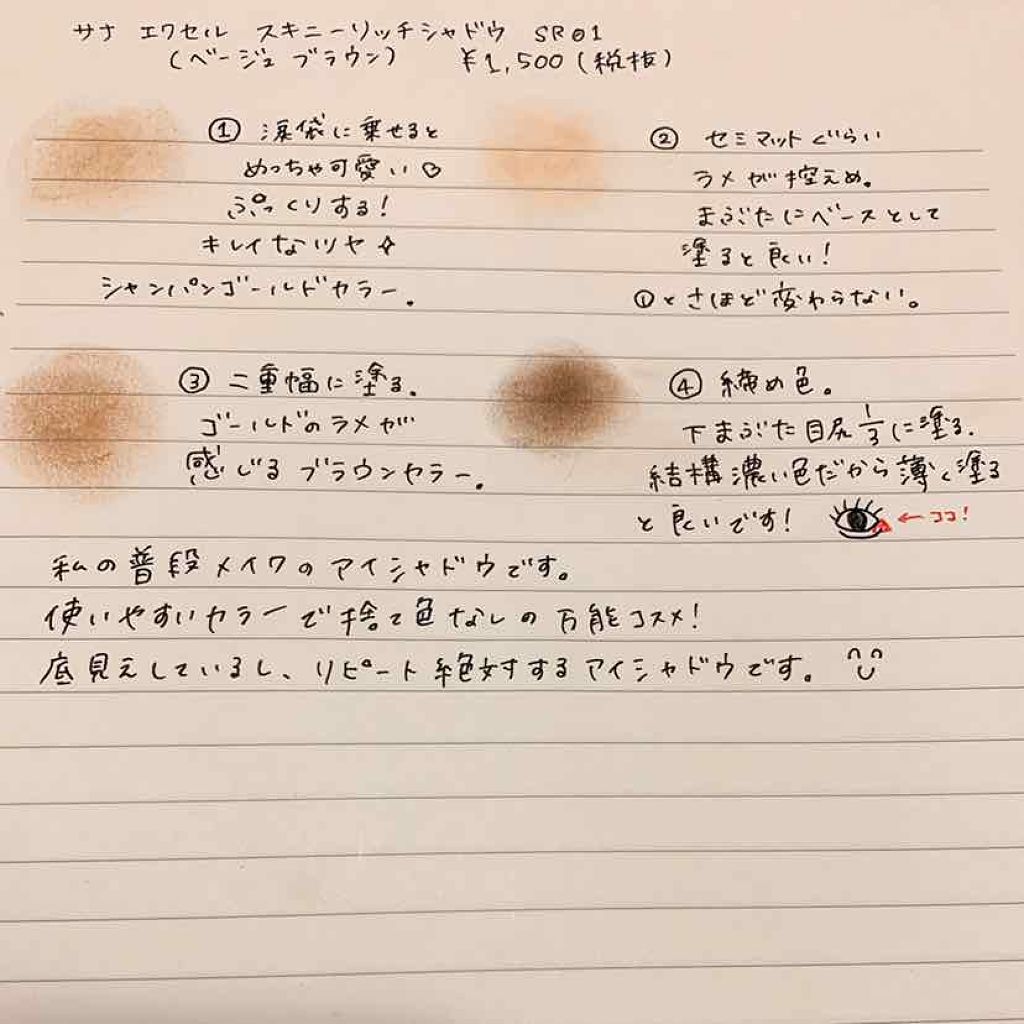 サナ エクセル スキニーリッチシャドウ SR01
(ベージュ ブラウン) ¥1,500(税抜)
① 涙袋に乗せると
めっちゃ可愛い♡
ぷっくりする!
キレイなツヤ✧
シャンパンゴールドカラー.
② セミマットぐらい
ラメが控えめ。
まぶたにベースとして
塗ると良い!
①とさほど変わらない。
③ 二重幅に塗る.
ゴールドのラメが
感じるブラウンカラー.
④ 締め色。
下まぶた目尻1/3に塗る.
結構濃い色だから薄く塗る
と良いです!
←ココ!
私の普段メイクのアイシャドウです。
使いやすいカラーで捨て色なしの万能コスメ!
底見えしているし、リピート絶対するアイシャドウです。